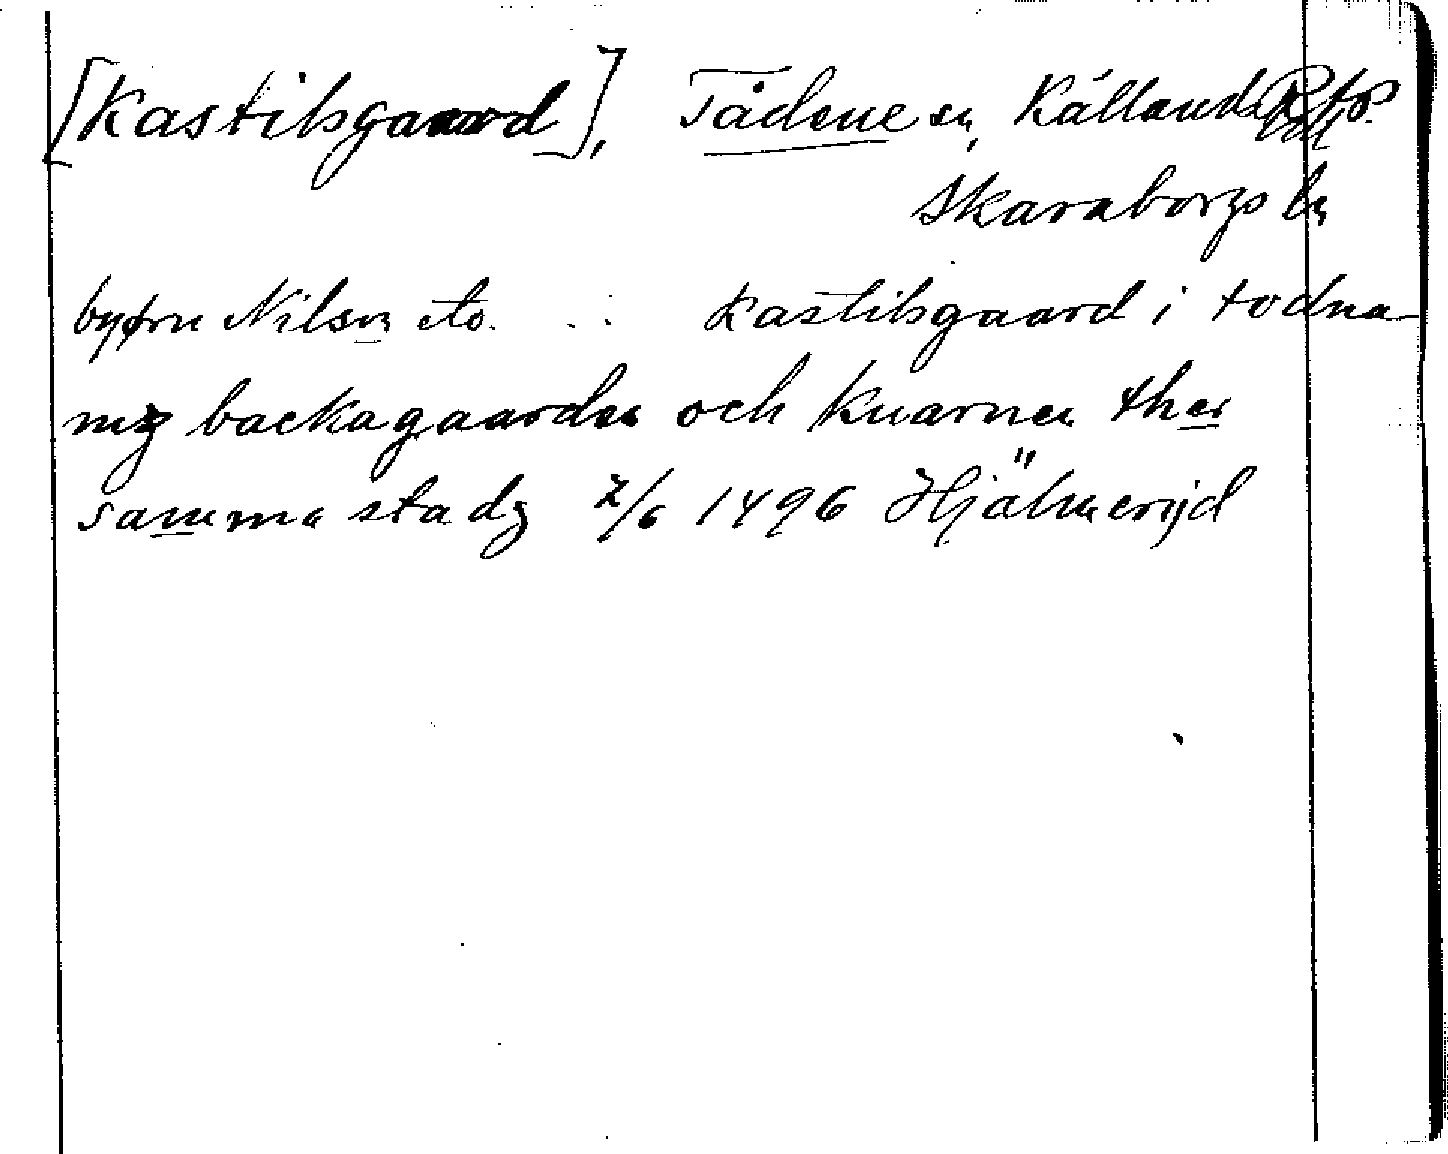 [Kastilsgaard], Tådene sn, Kållands
Skaraborgs ln
Nilson kastilsgaard i todna
backagaarden och kuarnen ther
samma stadz 2/6 1496 Hjälmeryd